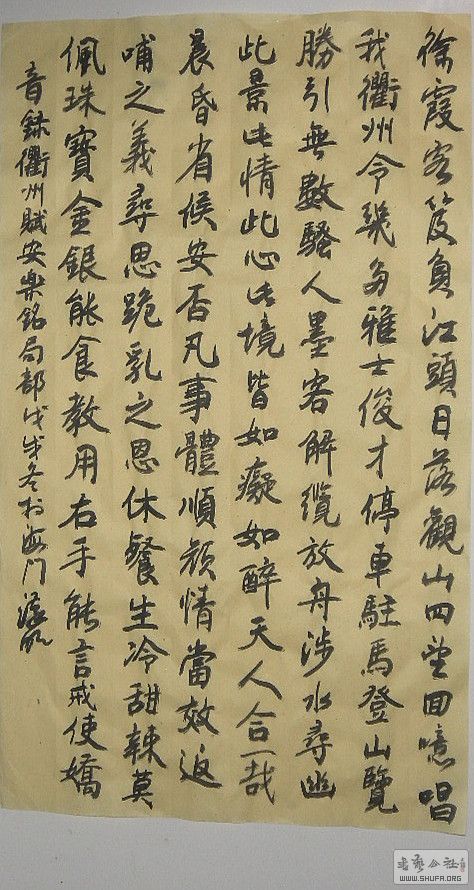 徐霞客笈負江頭日落觀山四望回憶唱
我衢州令幾多雅士俊才停車駐馬登山覽
勝引無數騷人墨客解纜放舟涉水尋幽
此景此情此心此境皆如癡如醉天人合一哉
晨昏省候安否凡事體順頎情當效返
哺之義尋思跪乳之恩休餐生冷甜辣莫
佩珠寶金銀能食教用右手能言戒使嬌
音錄衢州賦安樂銘局部戊戌冬於海门
WWW.SHUFA.ORG